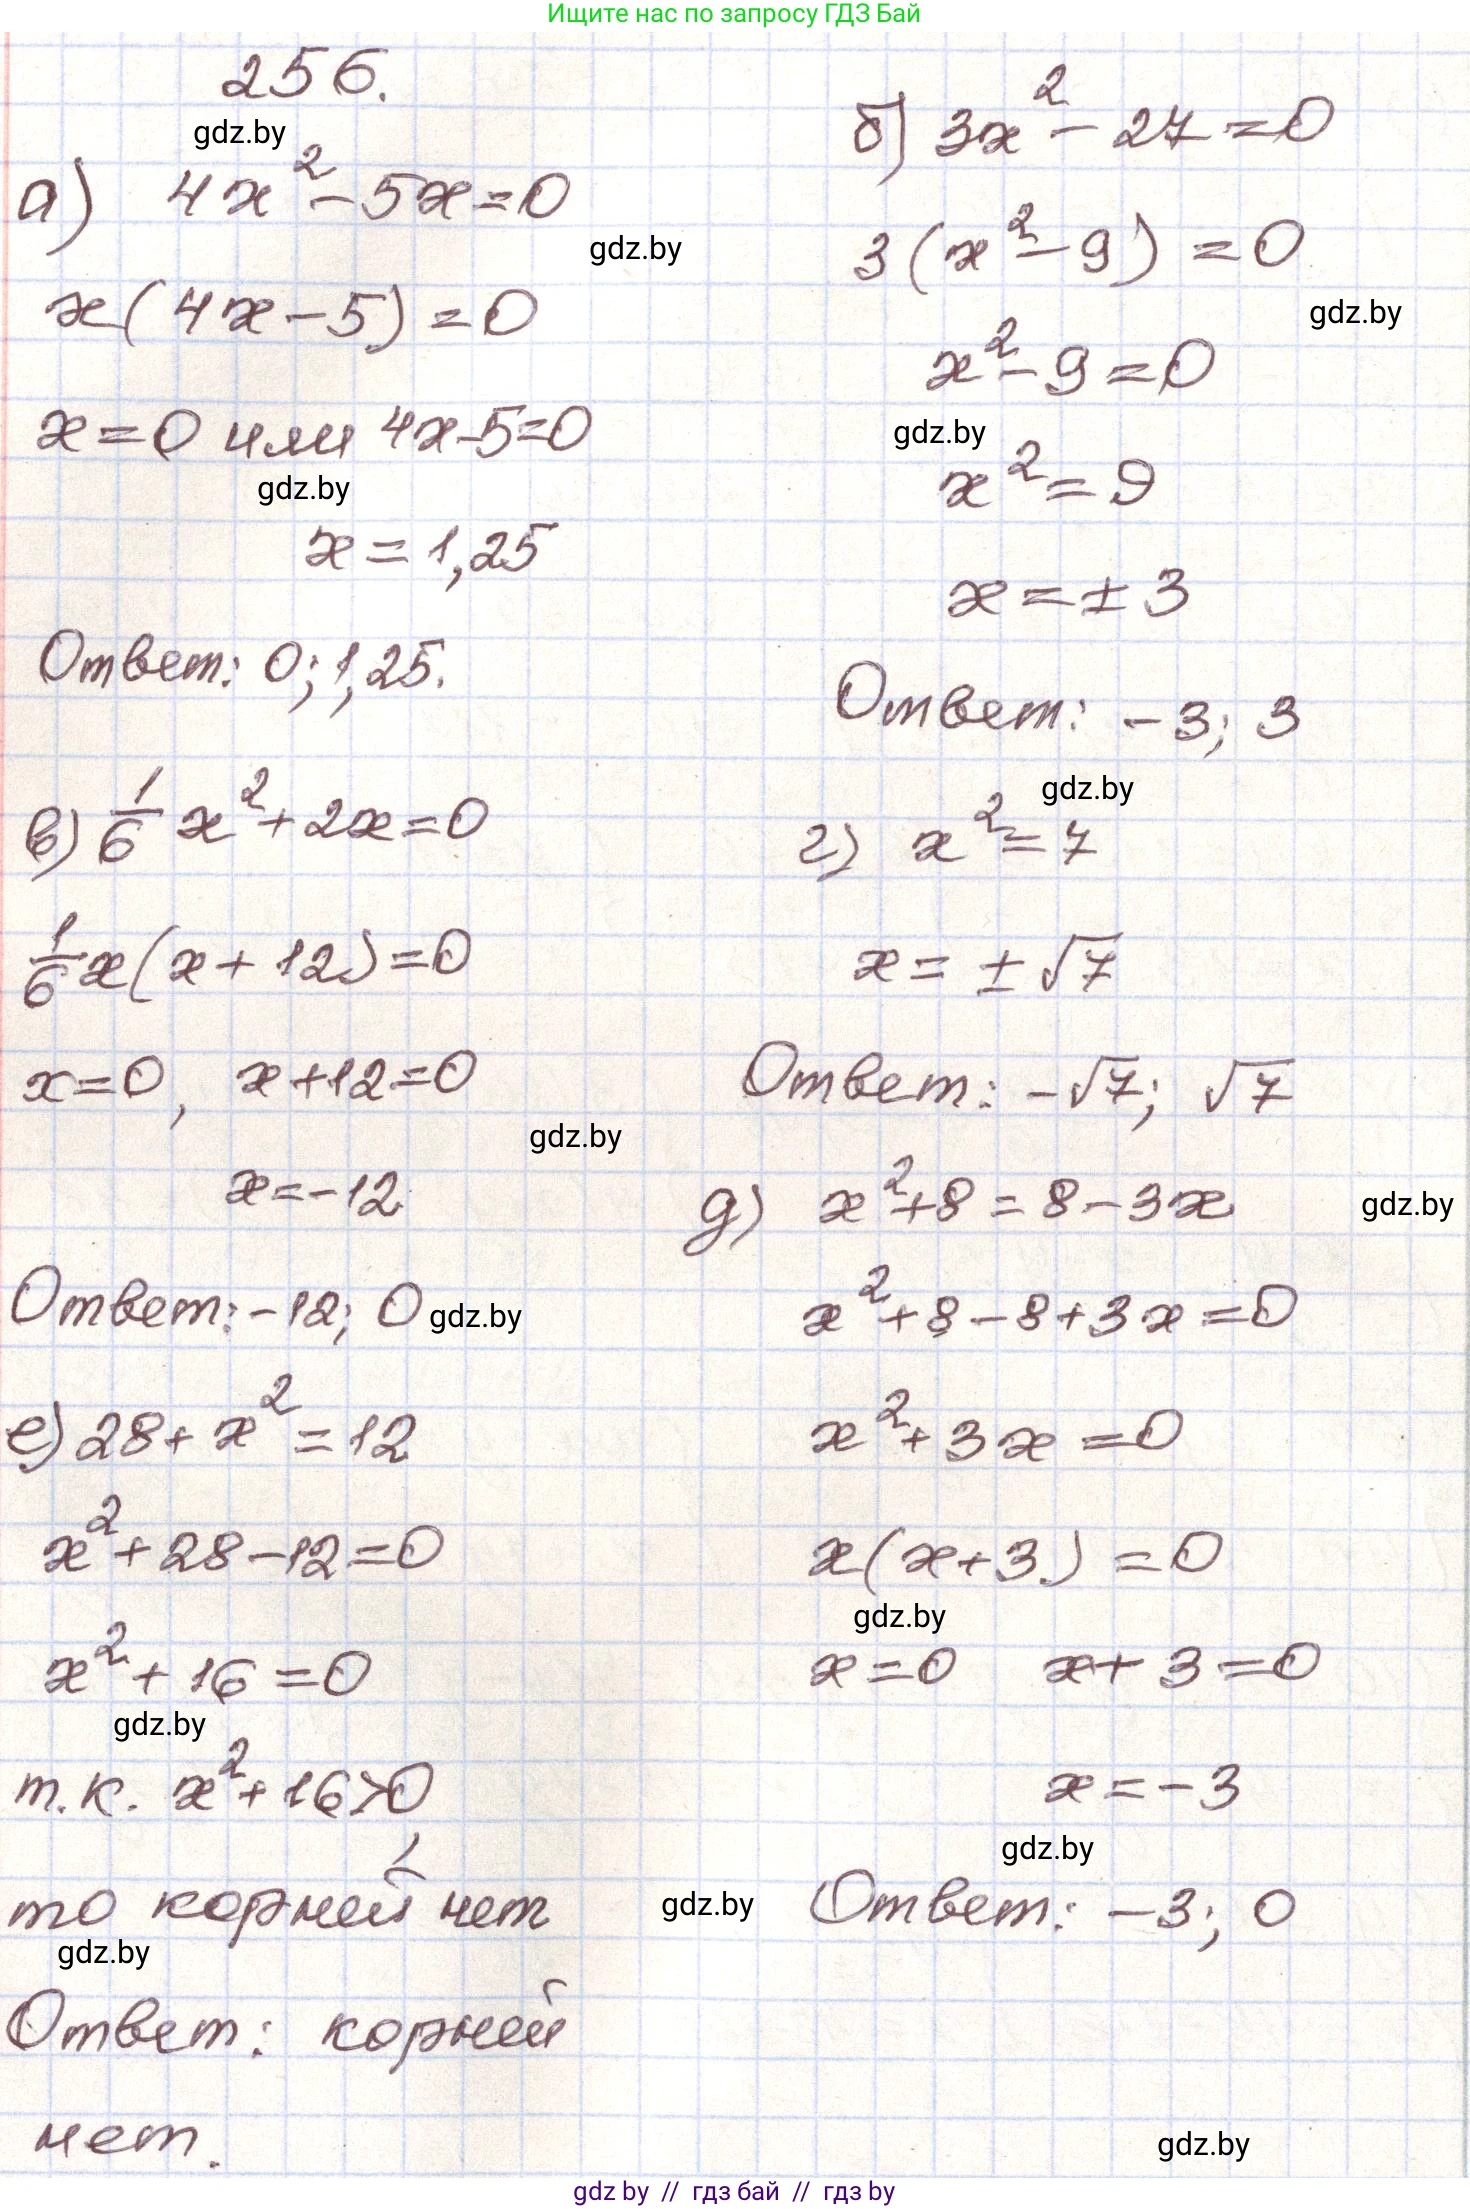 Ищите нас по запросу ГДЗ Бай
256.
gdz.by
а) 4x² - 5x = 0
gdz.by
x(4x - 5) = 0
x = 0 или 4x - 5 = 0
gdz.by
x = 1,25
Ответ: 0; 1,25.
б) 3x² - 27 = 0
3(x² - 9) = 0
gdz.by
x² - 9 = 0
gdz.by
x² = 9
x = ± 3
Ответ: -3; 3
gdz.by
в) 1/6 x² + 2x = 0
1/6 x(x + 12) = 0
x = 0, x + 12 = 0
gdz.by
x = -12
Ответ: -12; 0
gdz.by
г) x² = 7
x = ± √7
Ответ: -√7; √7
д) x² + 8 = 8 - 3x
gdz.by
x² + 8 - 8 + 3x = 0
x² + 3x = 0
x(x + 3) = 0
gdz.by
x = 0 x + 3 = 0
x = -3
gdz.by
Ответ: -3; 0
е) 28 + x² = 12
x² + 28 - 12 = 0
x² + 16 = 0
gdz.by
т.к. x² + 16 > 0,
то корней нет
gdz.by
gdz.by
Ответ: корней
нет.
gdz.by
gdz.by // гдз бай // гдз by